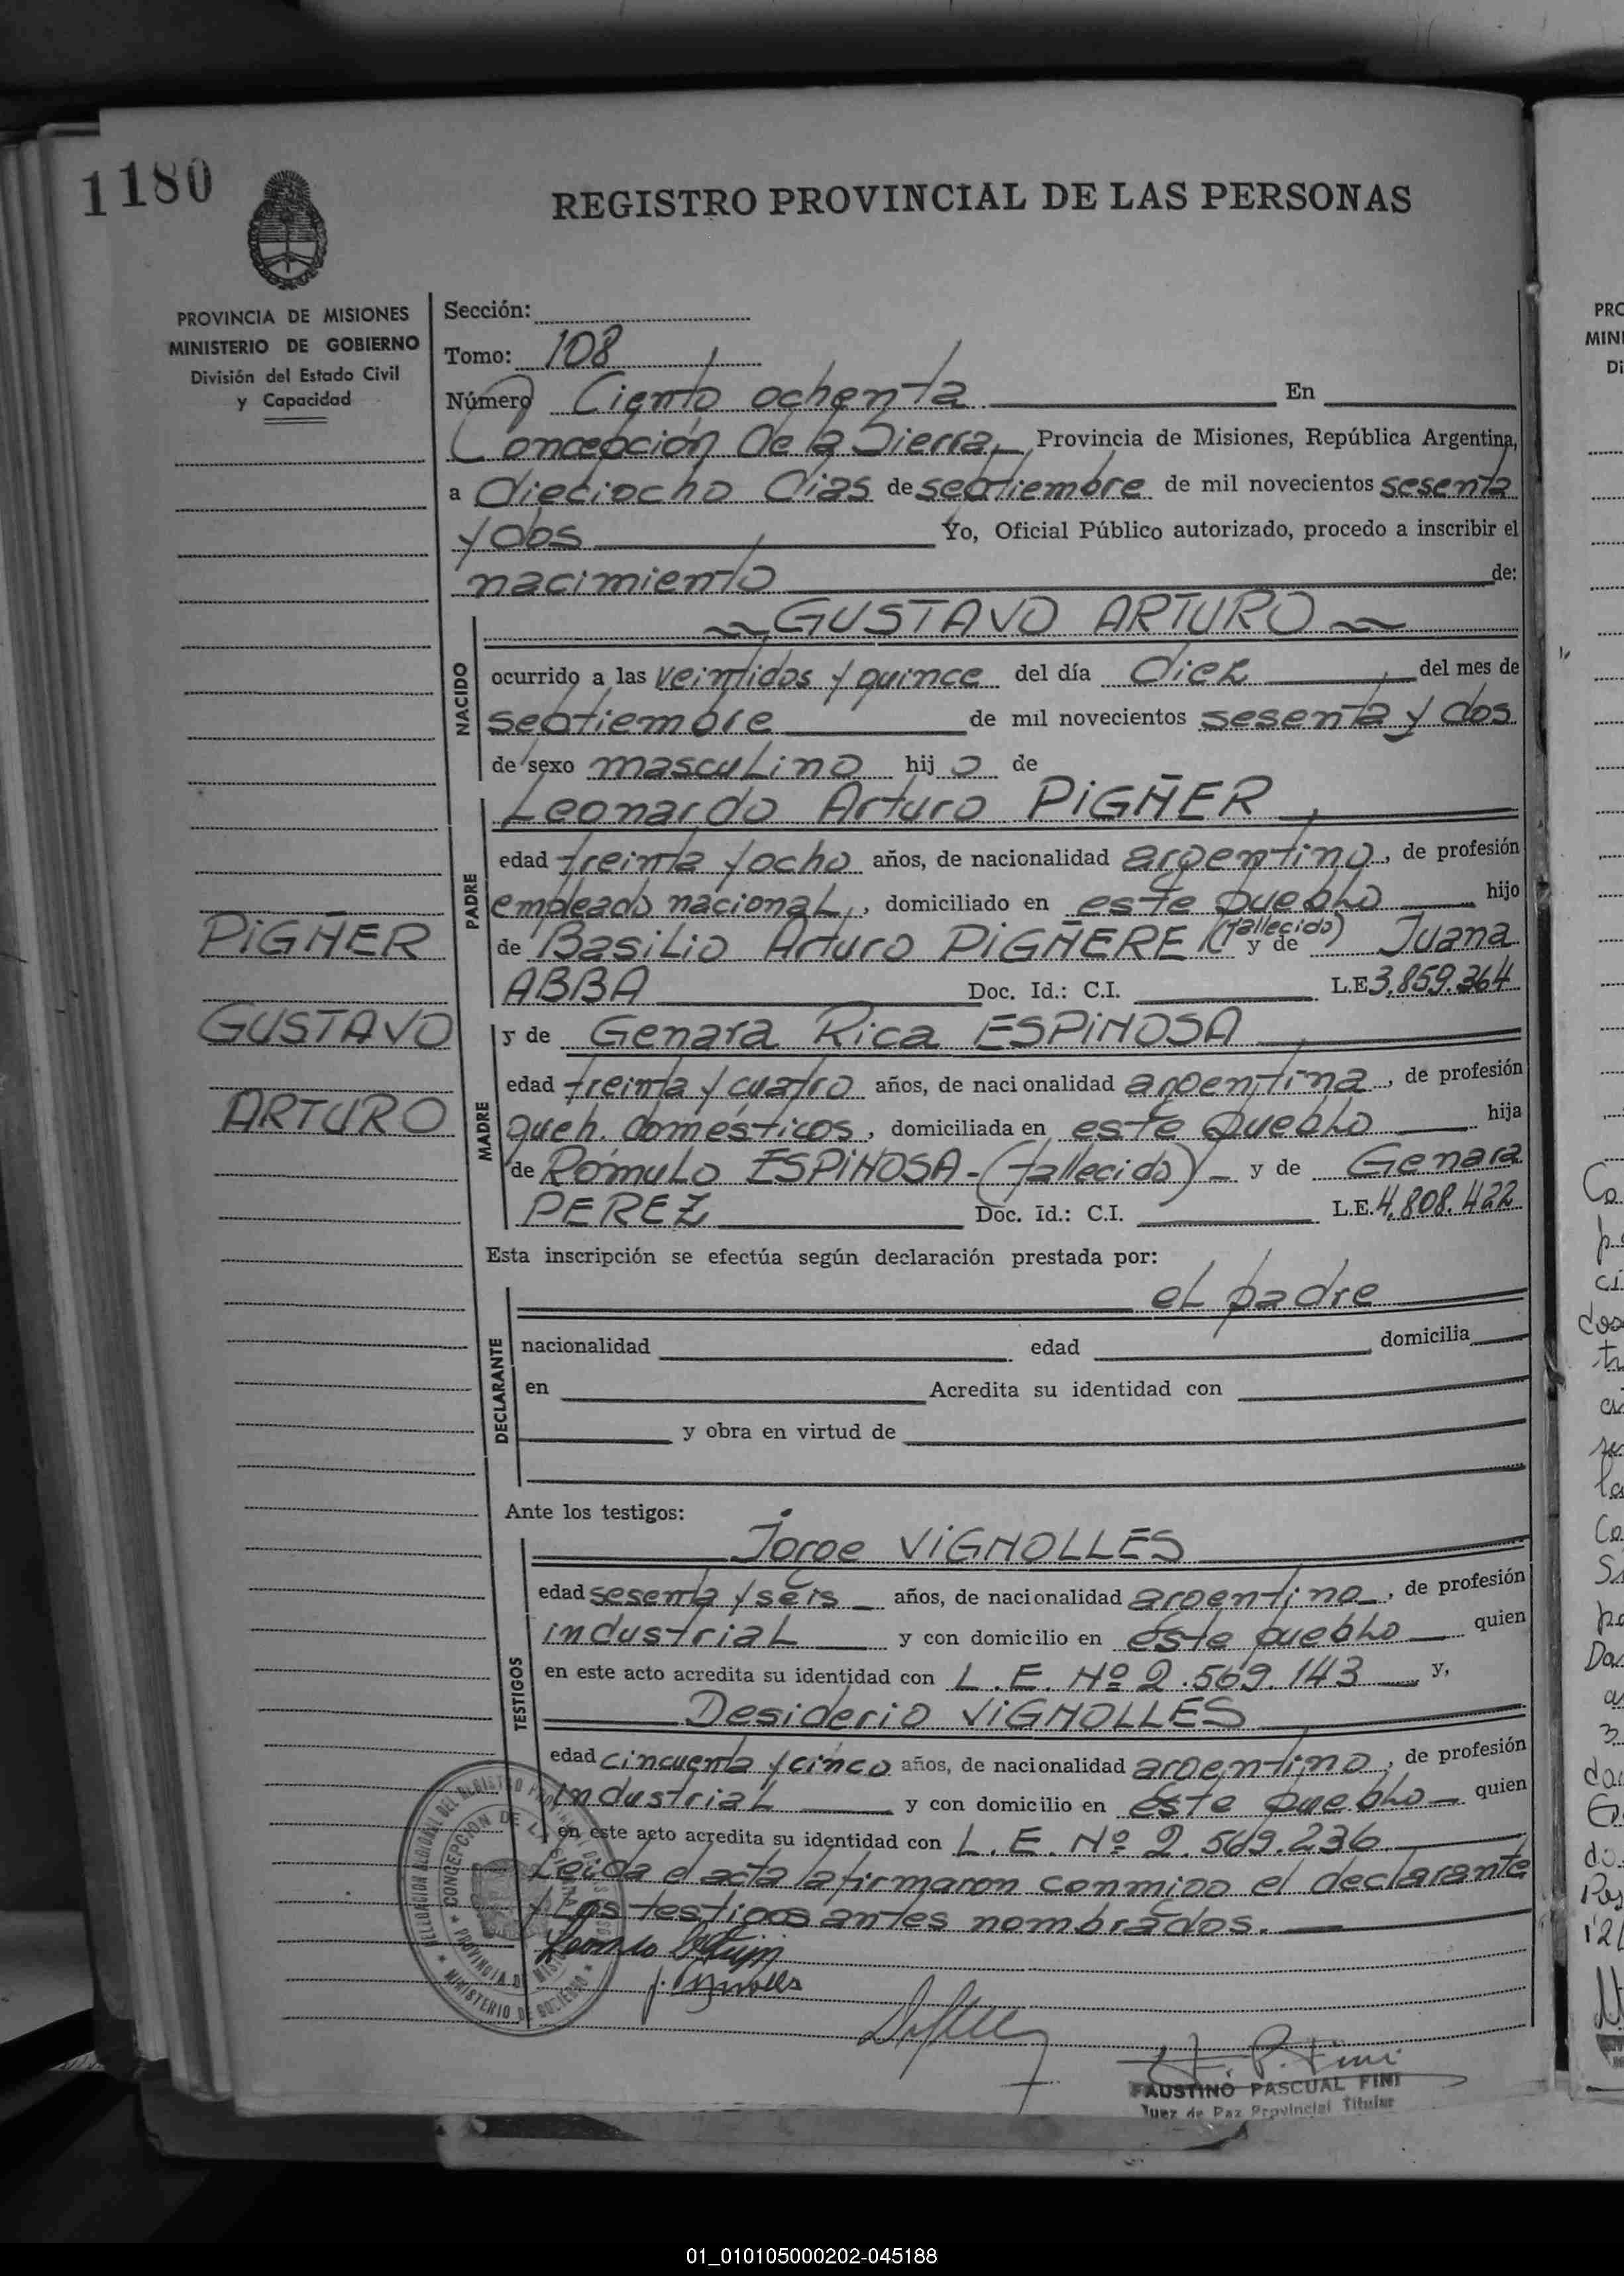 1180
REGISTRO PROVINCIAL DE LAS PERSONAS
PROVINCIA DE MISIONES
MINISTERIO DE GOBIERNO
División del Estado Civil
y Capacidad
Sección:
Tomo: 108
Número Ciento ochenta En
Concepción de la Sierra, Provincia de Misiones, República Argentina,
a dieciocho dias de septiembre de mil novecientos sesenta
y dos Yo, Oficial Público autorizado, procedo a inscribir el
nacimiento de:
NACIDO
GUSTAVO ARTURO
ocurrido a las veintidos y quince del día diez del mes de
septiembre de mil novecientos sesenta y dos
de sexo masculino hij o de
PADRE
Leonardo Arturo PIGÑER
edad treinta y ocho años, de nacionalidad argentino, de profesión
empleado nacional, domiciliado en este pueblo hijo
de Basilio Arturo PIGÑERE (fallecido) y de Juana
ABBA Doc. Id.: C.I. L.E 3.859.364
PIGÑER
GUSTAVO
ARTURO
MADRE
y de Genara Rica ESPINOSA
edad treinta y cuatro años, de nacionalidad argentina, de profesión
queh. domésticos, domiciliada en este pueblo hija
de Rómulo ESPINOSA-(fallecido) y de Genara
PEREZ Doc. Id.: C.I. L.E. 4.808.422
Esta inscripción se efectúa según declaración prestada por:
DECLARANTE
el padre
nacionalidad edad domicilia
en Acredita su identidad con
y obra en virtud de
Ante los testigos:
TESTIGOS
Jorge VIGNOLLES
edad sesenta y seis años, de nacionalidad argentino, de profesión
industrial y con domicilio en este pueblo quien
en este acto acredita su identidad con L.E. Nº 2.569.143 y,
Desiderio VIGNOLLES
edad cincuenta y cinco años, de nacionalidad argentino, de profesión
industrial y con domicilio en este pueblo quien
en este acto acredita su identidad con L.E. Nº 2.569.236
Leida el acta la firmaron conmigo el declarante
y los testigos antes nombrados.
CONCEPCION DE LA SIERRA
PROVINCIA DE MISIONES
MINISTERIO DE GOBIERNO
J. Vignolles
F. P. Fini
FAUSTINO PASCUAL FINI
Juez de Paz Provincial Titular
01_010105000202-045188